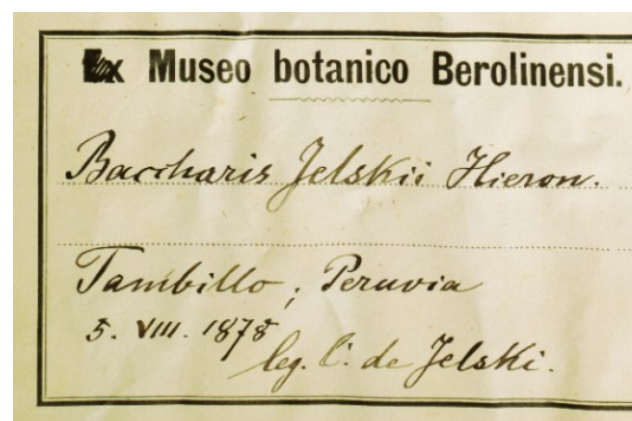 Ex Museo botanico Berolinensi.
Baccharis Jelskii Hieron.
Tambillo; Peruvia
5. VIII. 1878
leg. C. de Jelski.